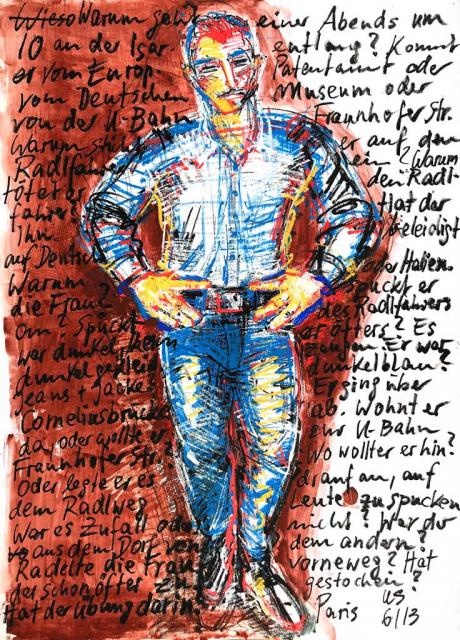 Wieso Warum geht einer Abends um
10 an der Isar entlang? Kommt
er vom Europ. Patentamt oder
vom Deutschen Museum oder
von der U-Bahn Fraunhoferstr.
Warum sticht er auf den
Radlfahrer ein? Warum
tötet er den Radl-
fahrer? Hat der
Ihn beleidigt
auf Deutsch oder Italien.
Warum spuckt er
die Frau des Radlfahrers
an? Spuckt er öfters? Es
war dunkel, beim Er war
dunkel gekleid dunkelblau?
Jeans + Jacke? Er ging über
Corneliusbrücke ab. Wohnt er
da, oder wollte er zur U-Bahn
Fraunhofer Str.? Wo wollte er hin?
Oder legte er es drauf an, auf
dem Radlweg Leute zu spucken
War es Zufall oder nicht? War der
aus dem Dorf von dem andern?
Radelte die Frau vorneweg? Hat
der schon öfter zu gestochen?
Hat der Übung darin? Paris US
6/13